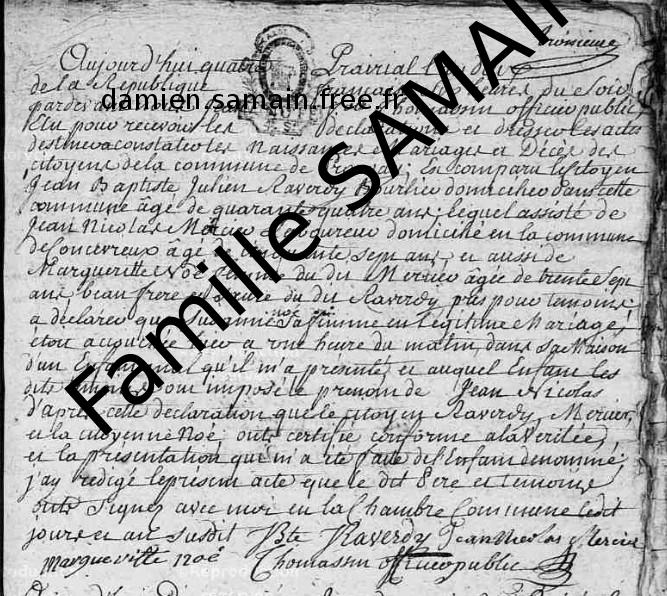 troisieme
Aujourd'hui quatre Prairial
de la République heures du Soir
pardevant thomassin officier public
Elu pour recevoir les declarations et dresser les actes
destinés a constater les Naissances Mariages et Décès des
citoyens de la commune de En comparu le citoyen
Jean Baptiste Julien Raverdy domicilié dans cette
commune âgé de quarante quatre ans, lequel assisté de
Jean Nicolas Mercier domicilié en la commune
de Concevreux âgé de cinquante sept ans, et aussi de
Margueritte Noé femme du dit Mercier âgée de trente Sept
ans, beau frere et du dit Raverdy pris pour temoins
a declaré que Susanne Noé Sa femme en legitime Mariage,
etoit acouchée a une heure du matin, dans Sa Maison
d'un Enfant mal qu'il m'a presenté, et auquel Enfant les
dits temoins ont imposé le prenom de Jean Nicolas
d'après cette declaration que le citoyen Raverdy, Mercier,
et la citoyenne Noé, onts certifié conforme a la Verité,
et la presentation qui m'a été faite de l'Enfant denommé,
j'ay redigé le present acte que le dit Pere et temoins
onts Signez avec moi en la Chambre Commune ledit
jour et an susdit Bte Raverdy Jean Nicolas Mercier
Margueritte noé Thomassin officier public
damien.samain.free.fr
Famille SAMAIN